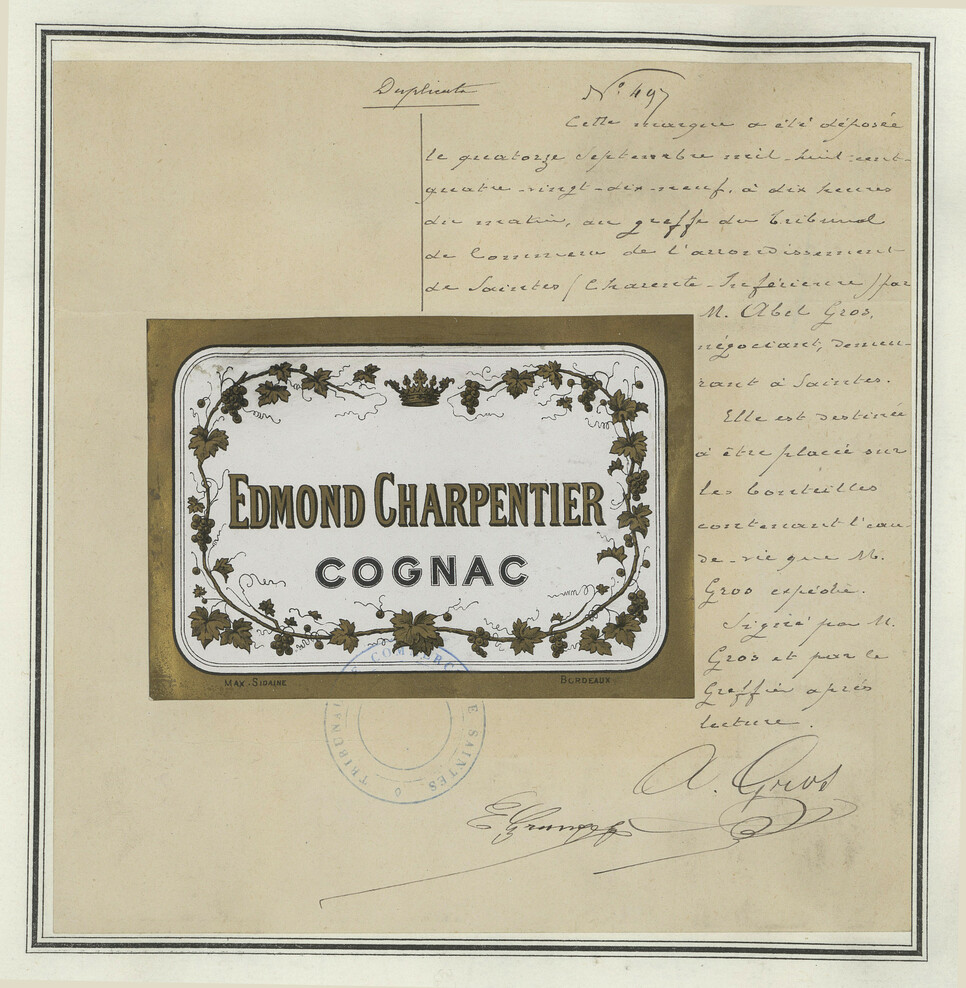 Duplicata
N° 497
Cette marque a été déposée
le quatorze Septembre mil-huit-cent-
quatre-vingt-dix-neuf, à dix heures
du matin, au greffe du Tribunal
de Commerce de l'arrondissement
de Saintes (Charente-Inférieure) par
M. Abel Gros,
négociant, demeu-
rant à Saintes.
Elle est destinée
à être placée sur
les bouteilles
contenant l'eau-
de-vie que M.
Gros expédie.
Signé par M.
Gros et par le
Greffier après
lecture.
EDMOND CHARPENTIER
COGNAC
MAX-SIDAINE BORDEAUX
TRIBUNAL DE COMMERCE
DE SAINTES
A. Gros